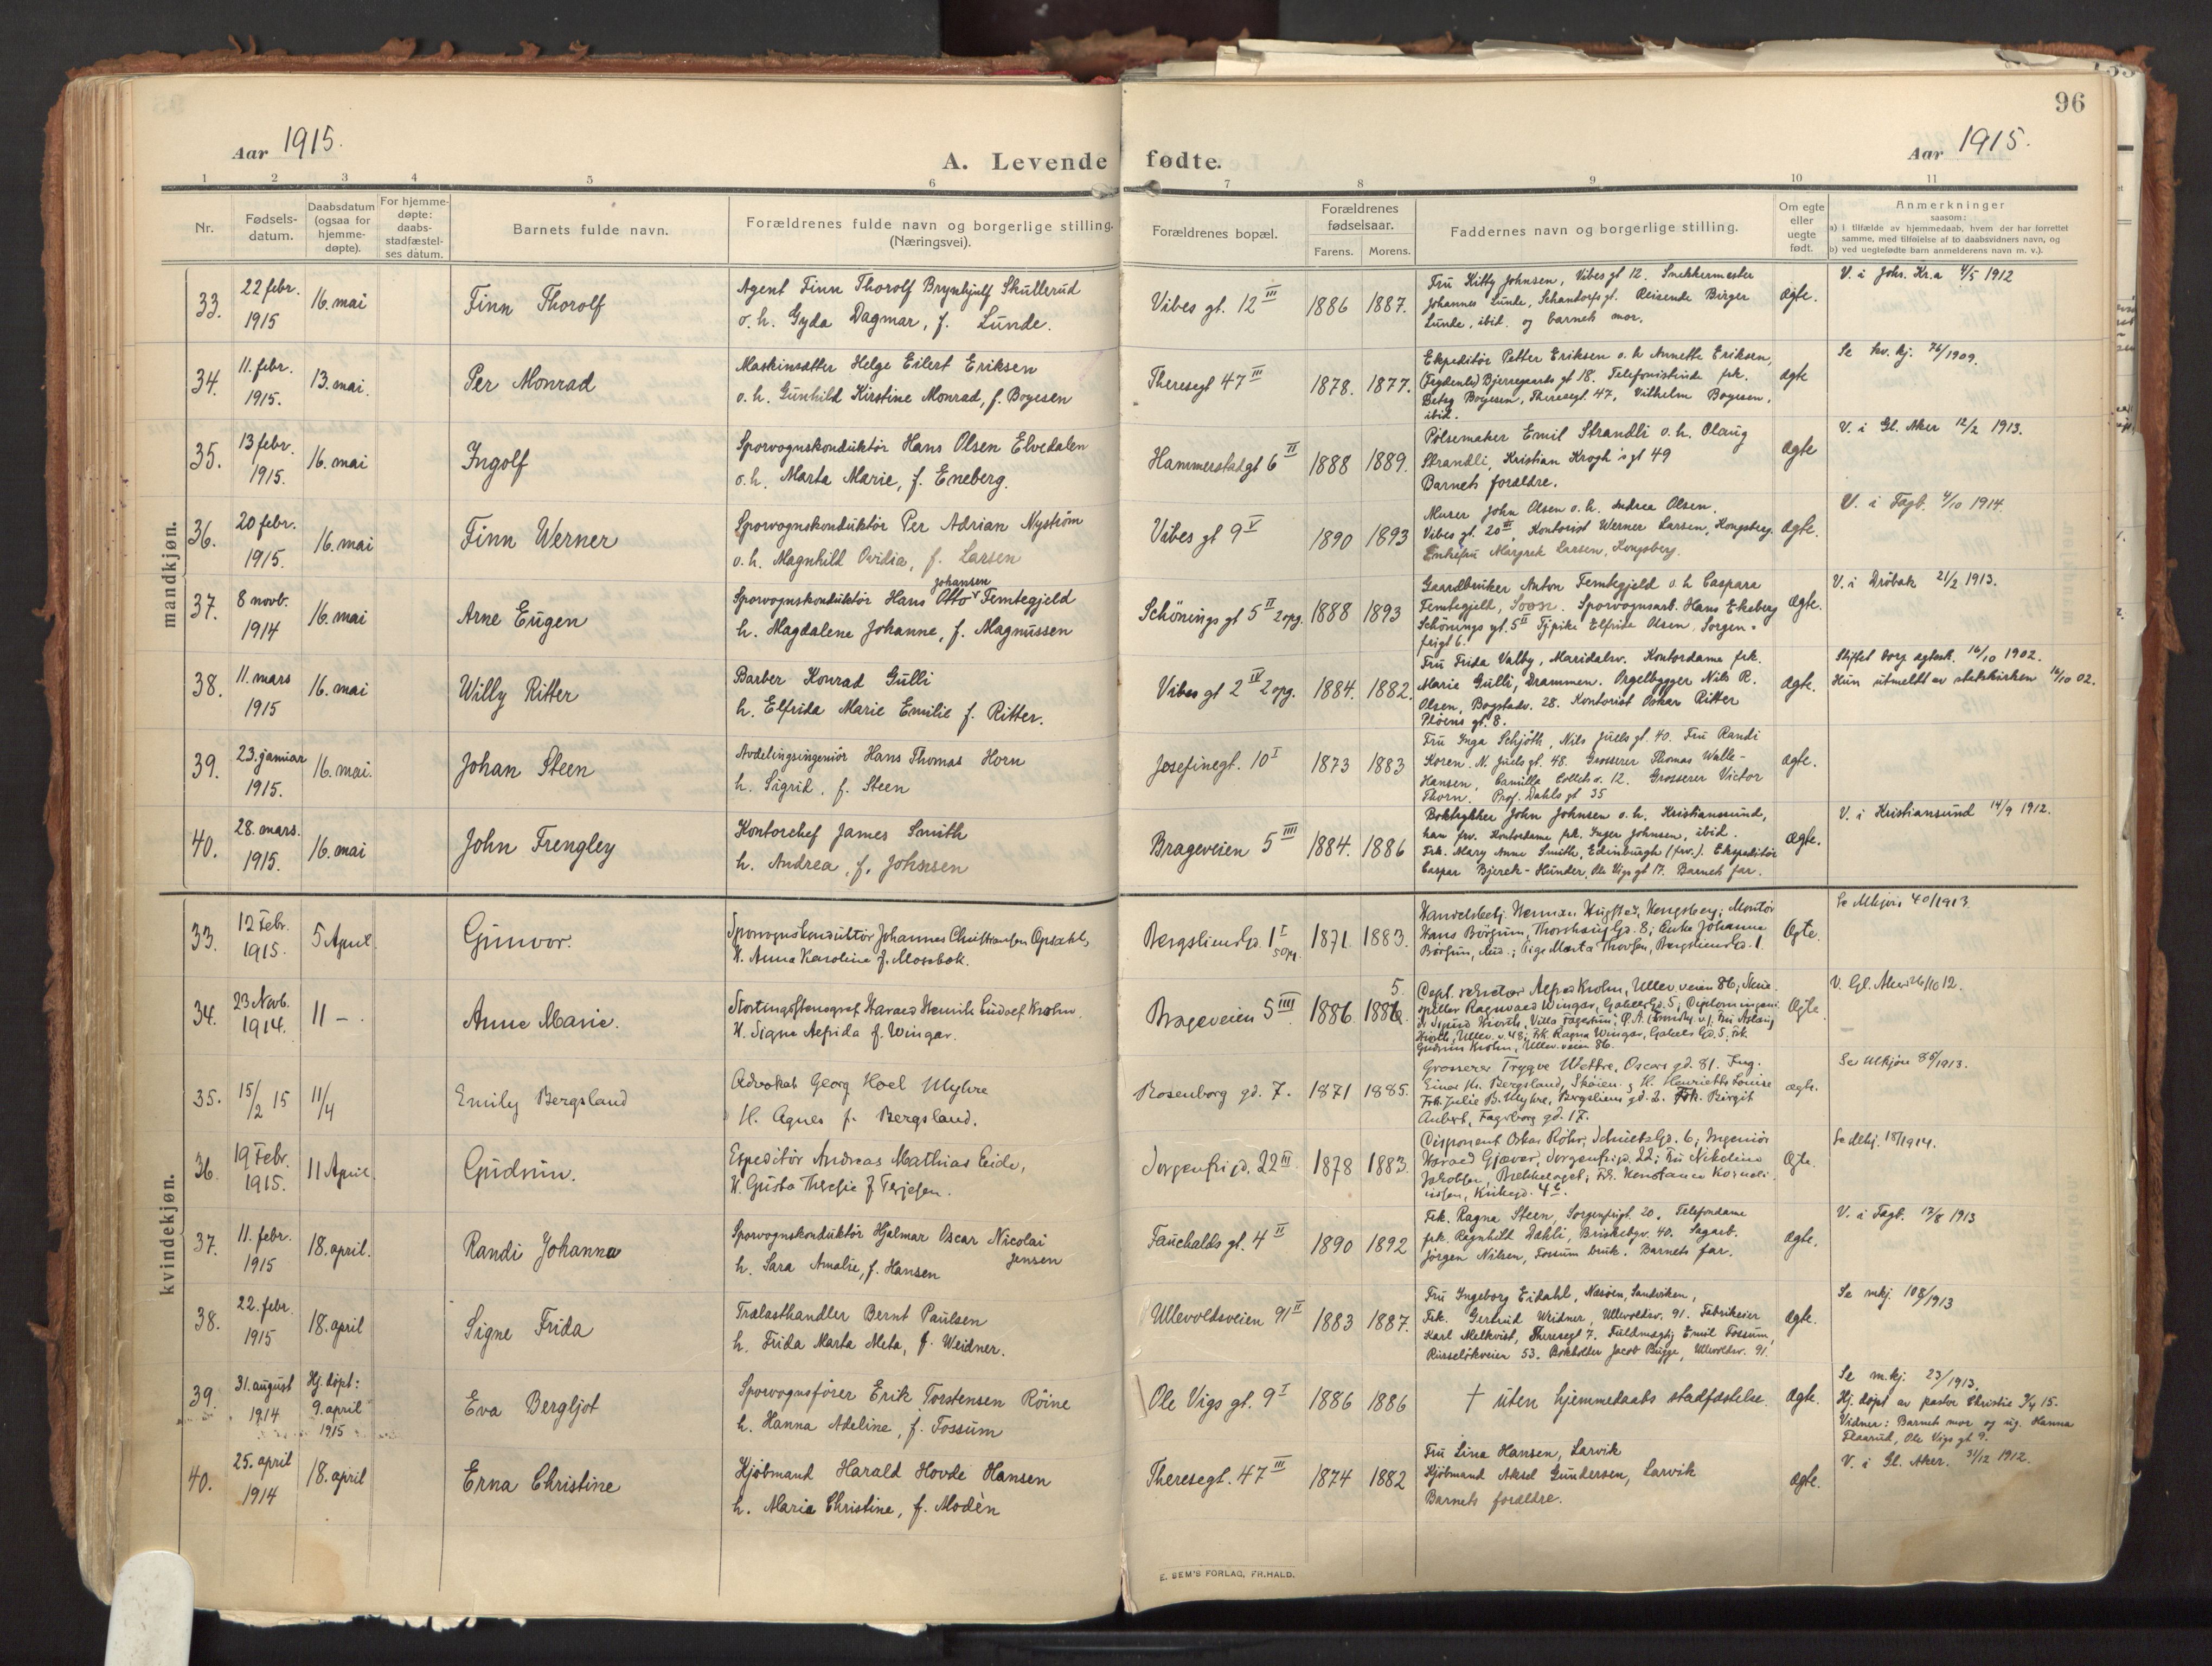 96
Aar 1915.
A. Levende fødte.
Aar 1915.
1 2 3 4 5 6 7 8 9 10 11
Nr.
Fødsels-
datum.
Daabsdatum
(ogsaa for
hjemme-
døpte).
For hjemme-
døpte:
daabs-
stadfæstel-
ses datum.
Barnets fulde navn.
Forældrenes fulde navn og borgerlige stilling.
(Næringsvei).
Forældrenes bopæl.
Forældrenes
fødselsaar.
Farens. Morens.
Faddernes navn og borgerlige stilling.
Om egte
eller
uegte
født.
Anmerkninger
saasom:
a) i tilfælde av hjemmedaab, hvem der har forrettet
samme, med tilføielse af to daabsvidners navn, og
b) ved uegtefødte barn anmelderens navn m. v.).
mandkjøn.
33.
22 febr.
1915
16. mai
Finn Thorolf
Agent Finn Thorolf Brynhjulf Skullerud
o. h. Gyda Dagmar, f. Lunde.
Vibes gt. 12 III
1886 1887.
Fru Kitty Johnsen, Vibes gt 12. Snekkermester
Johannes Lunde, Schandorfsgt. Reisende Birger
Lunde, ibid. og barnets mor.
ægte.
V. i Johs. Kr.a 4/5 1912
34.
11. febr.
1915.
13. mai.
Per Monrad
Maskinsætter Helge Eilert Eriksen
o. h. Gunhild Kirstine Monrad, f. Boyesen
Theresegt 47 III
1878. 1877.
Ekspeditør Petter Eriksen o. h Annette Eriksen,
Bjerregaards gt 18. Telefonistinde frk.
Betsy Boyesen, Theresegt. 47, Vilhelm Boyesen,
ibid.
ægte
Se kv. kj. 76/1909.
35.
13 febr.
1915.
16. mai
Ingolf
Sporvognskonduktør Hans Olsen Elvedalen
o. h. Marta Marie, f. Eneberg.
Hammerstadgt 6 II
1888 1889.
Pølsemaker Emil Strandli o. h. Olaug
Strandli, Kristian Krogh's gt 49
Barnets forældre.
ægte
V. i Gl. Aker 12/2 1913.
36.
20 febr.
1915.
16. mai
Finn Werner
Sporvognskonduktør Per Adrian Nyström
o. h. Magnhild Ovidia, f. Larsen
Vibes gt 9 V
1890 1893
Murer John Olsen o. h. Andrea Olsen.
Vibes gt. 20 III, Kontorist Werner Larsen, Kongsberg.
Enkefru Margrete Larsen, Kongsberg.
ægte.
V. i Fagb. 4/10 1914.
37.
8 novb.
1914
16. mai
Arne Eugen
Johansen
Sporvognskonduktør Hans Otto Femtegjeld
h. Magdalene Johanne, f. Magnussen
Schönings gt 5 II 2 opg.
1888 1893
Gaardbruker Anton Femtegjeld o. h Caspara
Femtegjeld, Soon. Sporvognsarb. Hans Ekeberg
Schönings gt. 5 II Tjpike Elfride Olsen, Sorgen-
frigt 6.
ægte.
V. i Drøbak 21/2 1913.
38.
11. mars
1915
16. mai
Willy Ritter
Barber Konrad Gulli
h. Elfrida Marie Emilie f. Ritter.
Vibes gt 2 IV 2 opg.
1884. 1882.
Fru Frida Valby, Maridalsv. Kontordame frk.
Marie Gulli, Drammen. Orgelbygger Nils R.
Olsen, Bogstadv. 28. Kontorist Oskar Ritter
Pløens gt. 8.
ægte.
Stiftet borg. ægtesk. 16/10 1902.
Hun utmeldt av statskirken 16/10 02.
39.
23. januar
1915.
16. mai.
Johan Steen
Avdelingsingeniør Hans Thomas Horn
h. Sigrid, f. Steen
Josefinegt. 10 I
1873 1883
Fru Inga Schjöth, Nils Juels gt. 40. Fru Randi
Koren. N. Juels gt. 48. Grosserer Thomas Walle-
Hansen, Camilla Collets v. 12. Grosserer Victor
Thorn. Prof. Dahls gt 35
ægte.
40.
28. mars.
1915.
16. mai
John Frengley
Kontorchef James Smith
h. Andrea, f. Johnsen
Brageveien 5 IIII
1884. 1886
Boktrykker John Johnsen o. h. Kristianssund,
han frv. Kontordame frk. Inger Johnsen, ibid.
Frk. Mary Anne Smith, Edinburgh (frv.). Ekspeditør
Caspar Bjerck-Hunder, Ole Vigs gt 17. Barnets far.
ægte.
V. i Kristiansund 14/9 1912.
kvindekjøn.
33.
12 Febr.
1915.
5 April
Gunvor.
Sporvognskonduktør Johannes Christiansen Opsahl,
H. Anna Karoline f. Mosebak.
Bergsliensgd. 1 I
5 opg.
1871. 1883.
Handelsbetj. Herman Hugsted, Kongsberg; Montør
Hans Börsum, Thorshauggd. 8; Enke Johanne
Börsum, ibid.; Pige Marta Thorsen, Bergsliensgd. 1.
Ægte.
Se Mkjøn 40/1913.
34.
23 Novb.
1914.
11 –
Anne Marie.
Stortingsstenograf Harald Henrik Ludolf Krohn.
H. Signe Alfrida f. Wingar.
Brageveien 5 IIII
1886. 1886.
5.
Cept. rektor Alfred Krohn, Ullev.veien 86; Skue-
spiller Ragnvald Wingar, Gabelsgd. 5;
Frk. Ragna Wingar, Gabels Gd. 5; Frk.
Gudrun Krohn, Ullev.veien 86.
Ægte.
V. Gl. Aker 26/10 12.
35.
15/2 15
11/4
Emily Bergsland
Advokat Georg Hoel Myhre
H. Agnes f. Bergsland.
Rosenborg gd. 7.
1871 1885.
Grosserer Trygve Wettre, Oscars gd. 81. Ing.
Einar Kr. Bergsland, Skøien. & H. Henriette Louise
Frk. Julie B. Myhre, Bergsliens gd. 2. Frk. Birgit
Aubert, Fagerborg gd. 17.
ægte.
Se Mkjøn 85/1913.
36.
19 Febr.
1915.
11 April.
Gudrun.
Expeditør Andreas Mathias Eide,
H. Gusta Therese f Terjesen.
Sorgenfrigd. 22 III
1878 1883.
Disponent Oskar Röhr, Schultzgd. 6; Ingeniør
Harald Gjæver, Sorgenfrigd. 22; Fru Nikoline
Jakobsen, Brekkelaget; Frk. Konstance Korneli-
ussen, Kirkegd. 4 b.
Ægte.
Se Mkj. 18/1914.
37.
11. febr.
1915
18. april.
Randi Johanna
Sporvognskonduktør Hjalmar Oscar Nicolai
Jensen
h. Sara Amalie, f. Hansen
Fauchalds gt. 4 II
1890 1892
Frk. Ragna Steen, Sorgenfrigt. 20. Telefondame
frk. Ragnhild Dahli, Briskebyv. 40. Sagarb.
Jørgen Nilsen, Fossum bruk. Barnets far.
ægte.
V. i Fagb. 13/8 1913
38.
22. febr.
1915
18. april
Signe Frida
Trælasthandler Bernt Paulsen
h. Frida Marta Meta, f. Weidner.
Ullevoldsveien 91 II
1883 1887.
Fru Ingeborg Eidahl, Nesøen, Sandviken,
Frk. Gertrud Weidner, Ullevoldsv. 91. Fabrikeier
Karl Melkvist, Theresegt 7. Fuldmægtig Emil Fossum,
Russeløkveien 53. Bokholder Jacob Bugge, Ullevoldsv. 91.
ægte.
Se mkj. 108/1913
39.
31. august
1914
Hj. døpt:
9. april
1915
Eva Bergljot
Sporvognsfører Erik Torstensen Röine
h. Hanna Adeline, f. Fossum
Ole Vigs gt. 9 I
1886 1886
† uten hjemmedaabs stadfæstelse.
ægte.
Se m.kj. 23/1913.
Hj. døpt av pastor Christie 9/4 15.
Vidner: Barnets mor og ug. Hanna
Flaarud, Ole Vigs gt 9.
40.
25. april
1914
18. april
Erna Christine
Kjøbmand Harald Hovde Hansen
h. Maria Christine, f. Modèn
Theresegt. 47 III
1874 1882
Fru Lina Hansen, Larvik
Kjøbmand Aksel Gundersen, Larvik
Barnets forældre.
ægte.
V. i Gl. Aker. 31/12 1912.
E. SEM'S FORLAG, FR.HALD.